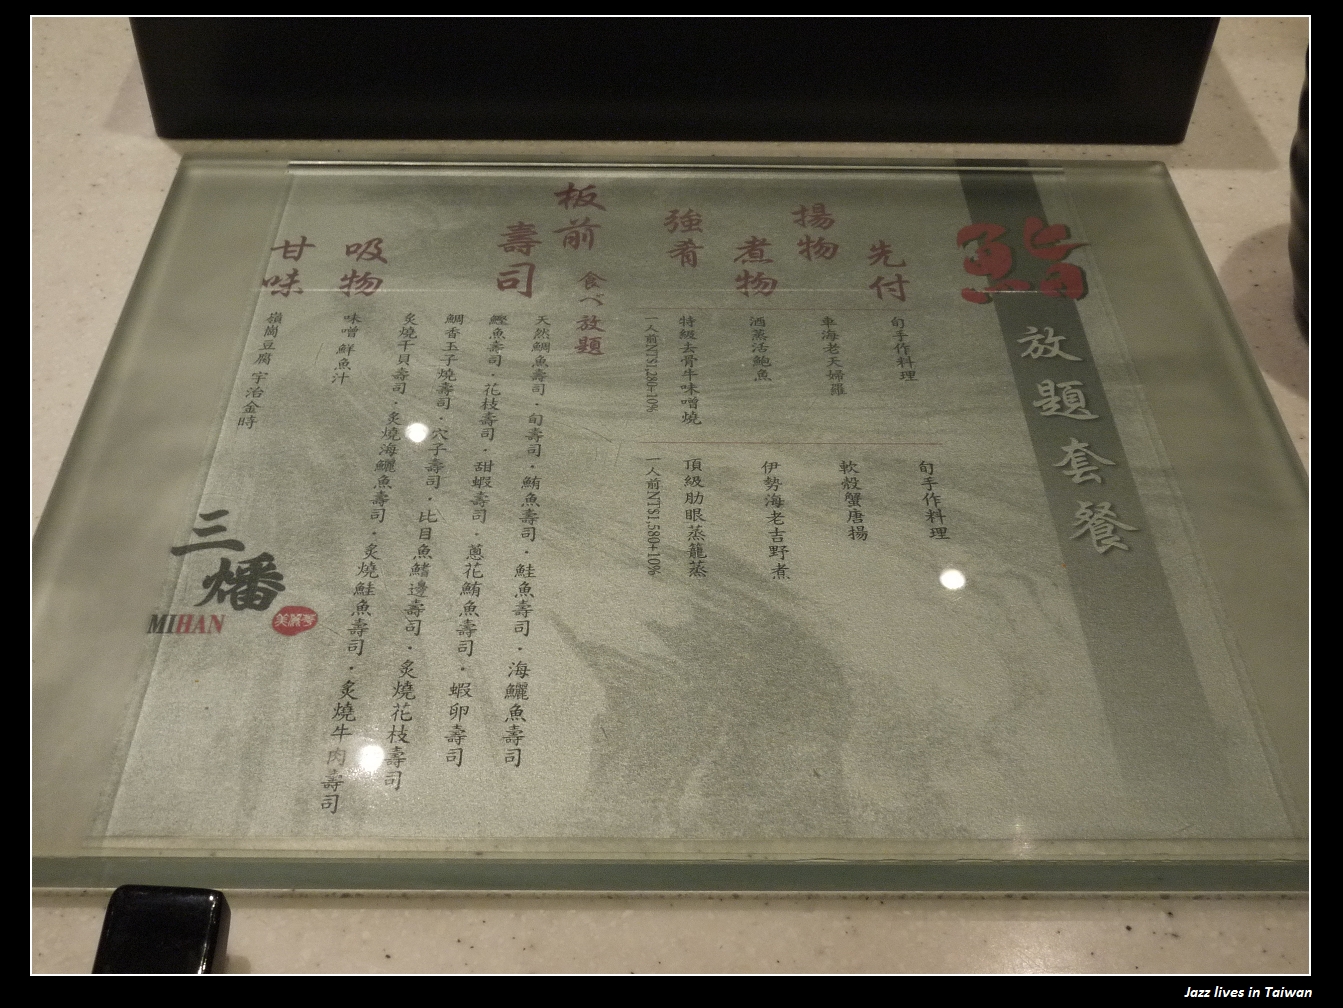 鮨
放題套餐
先付
揚物
煮物
強肴
旬手作料理
車海老天婦羅
酒蒸活鮑魚
特級去骨牛味噌燒
一人前NT$1,280+10%
旬手作料理
軟殼蟹唐揚
伊勢海老吉野煮
頂級肋眼蒸籠蒸
一人前NT$1,580+10%
板前
食べ放題
壽司
天然鯛魚壽司・旬壽司・鮪魚壽司・鮭魚壽司・海鱺魚壽司
鰹魚壽司・花枝壽司・甜蝦壽司・蔥花鮪魚壽司・蝦卵壽司
鯛香玉子燒壽司・穴子壽司・比目魚鰭邊壽司・炙燒花枝壽司
炙燒干貝壽司・炙燒海鱺魚壽司・炙燒鮭魚壽司・炙燒牛肉壽司
吸物
味噌 鮮魚汁
甘味
嶺崗豆腐 宇治金時
三燔
MIHAN
美麗亭
Jazz lives in Taiwan